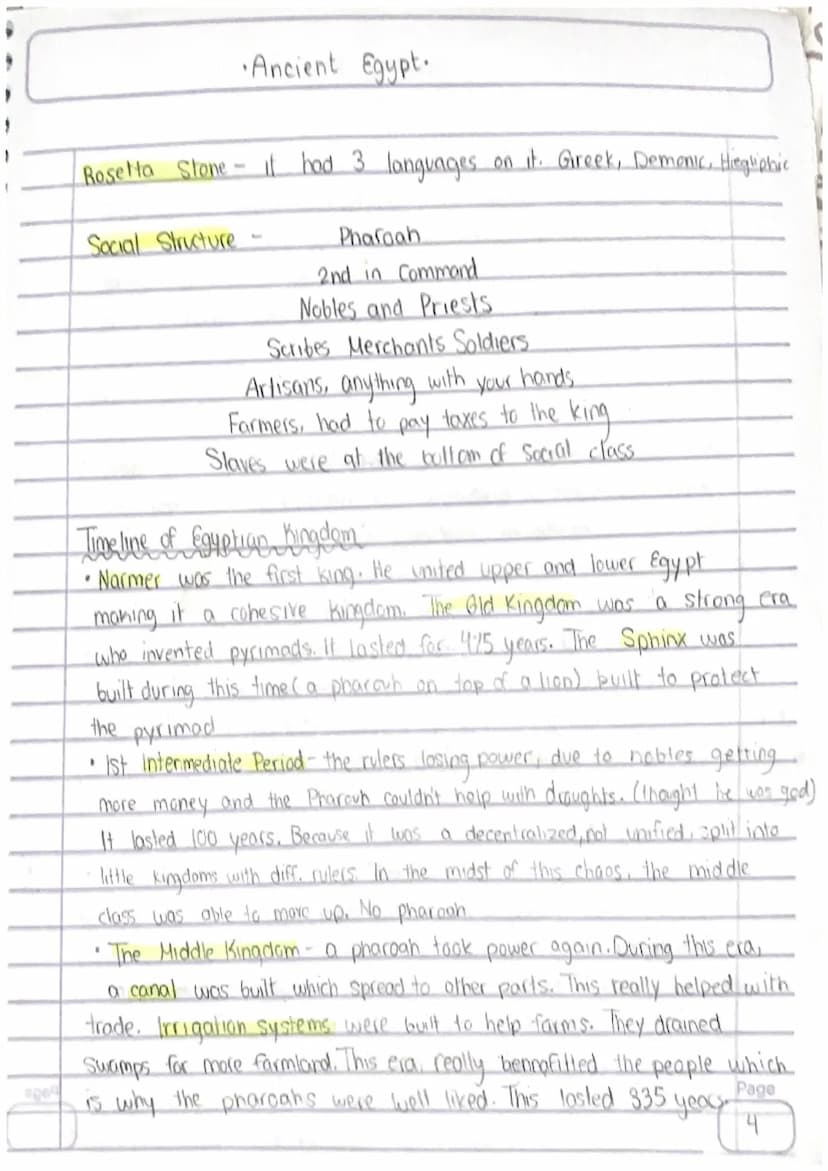 ·Ancient Egypt·
Rosetta Stone - it had 3 languages on it. Greek, Demonic, Hiegliphic
Social Structure - Pharoah
2nd in Command
Nobles and Priests
Scribes Merchants Soldiers
Artisans, anything with your hands
Farmers, had to pay taxes to the king
Slaves were at the bottom of Social class
Timeline of Egyptian Kingdom
• Narmer was the first king. He united upper and lower Egypt
making it a cohesive kingdom. The Old Kingdom was a strong era
who invented pyrimads. It lasted for 425 years. The Sphinx was
built during this time (a pharouh on top of a lion) built to protect
the pyrimad
• 1st Intermediate Period - the rulers losing power, due to nobles getting
more money and the Pharouh couldn't help with droughts. (thought he was god)
It lasted 100 years. Because it was a decentralized, not unified, split into
little kingdoms with diff. rulers. In the midst of this chaos, the middle
class was able to move up. No pharoah
• The Middle Kingdom - a pharoah took power again. During this era,
a canal was built which spread to other parts. This really helped with
trade. Irrigation systems were built to help farms. They drained
swamps for more farmland. This era, really bennafitted the people which
is why the pharoahs were well liked. This lasted 335 years.
Page
4